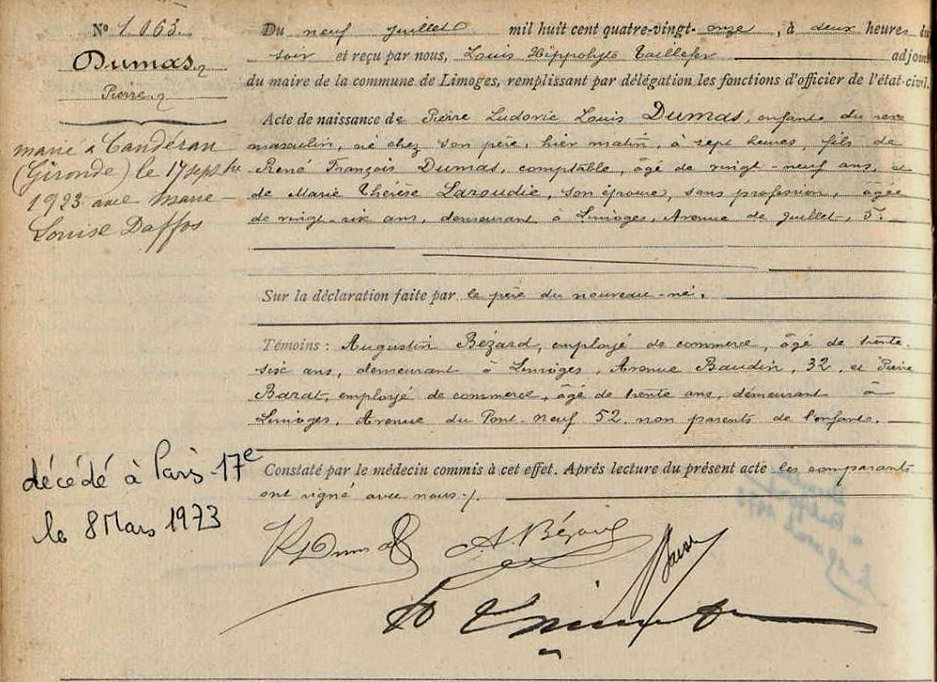 N° 1.063.
Dumas
Pierre
marié à Caudéran
(Gironde) le 17 septbre
1923 avec Marie-
Louise Daffos
décédé à Paris-17e
le 8 Mars 1973
Du neuf juillet mil huit cent quatre-vingt-onze, à deux heures du
soir et reçu par nous, Louis Hippolyte Taillefer adjoint
du maire de la commune de Limoges, remplissant par délégation les fonctions d'officier de l'état-civil.
Acte de naissance de Pierre Ludovic Louis Dumas, enfant du sexe
masculin, né chez son père, hier matin, à sept heures, fils de
René François Dumas, comptable, âgé de vingt neuf ans, et
de Marie Thérèse Laroudie, son épouse, sans profession, âgée
de vingt-six ans, demeurant à Limoges, Avenue de Juillet, 5.
Sur la déclaration faite par le père du nouveau-né.
Témoins : Augustin Bézard, employé de commerce, âgé de trente-
six ans, demeurant à Limoges, Avenue Baudin, 32, et Pierre
Barat, employé de commerce, âgé de trente ans, demeurant à
Limoges, Avenue du Pont-neuf 52. non parents de l'enfant.
Constaté par le médecin commis à cet effet. Après lecture du présent acte les comparants
ont signé avec nous./.
A. Bézard